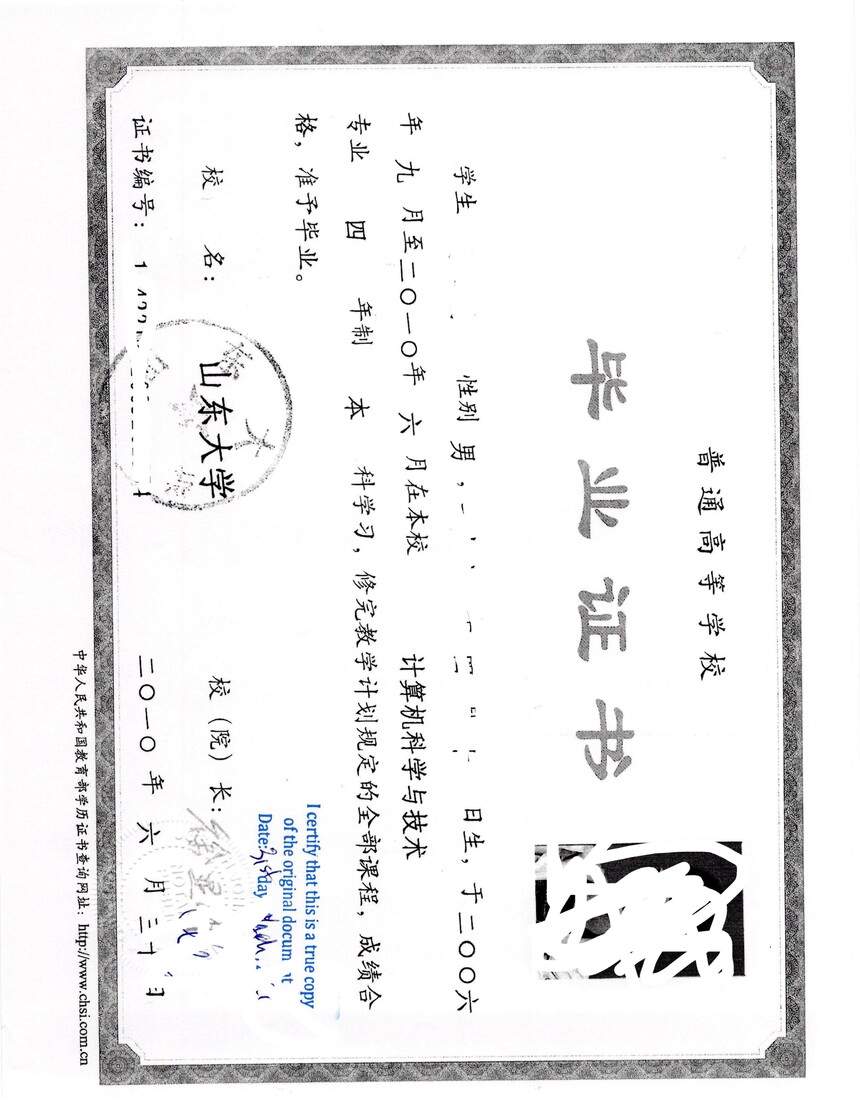 普通高等学校
毕业证书
学生 性别 男， 日生，于二〇〇六
年 九 月至二〇一〇年 六 月在本校 计算机科学与技术
专业 四 年制 本 科学习，修完教学计划规定的全部课程，成绩合
格，准予毕业。
I certify that this is a true copy
of the original document
Date: 31st day
校 名： 山东大学 校（院）长：
证书编号： 二〇一〇年 六 月 三十 日
中华人民共和国教育部学历证书查询网址：http://www.chsi.com.cn